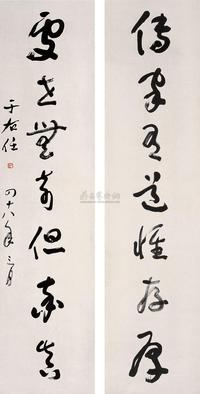 傳家有道惟存厚
處世無奇但率真
于右任
四十八年三月